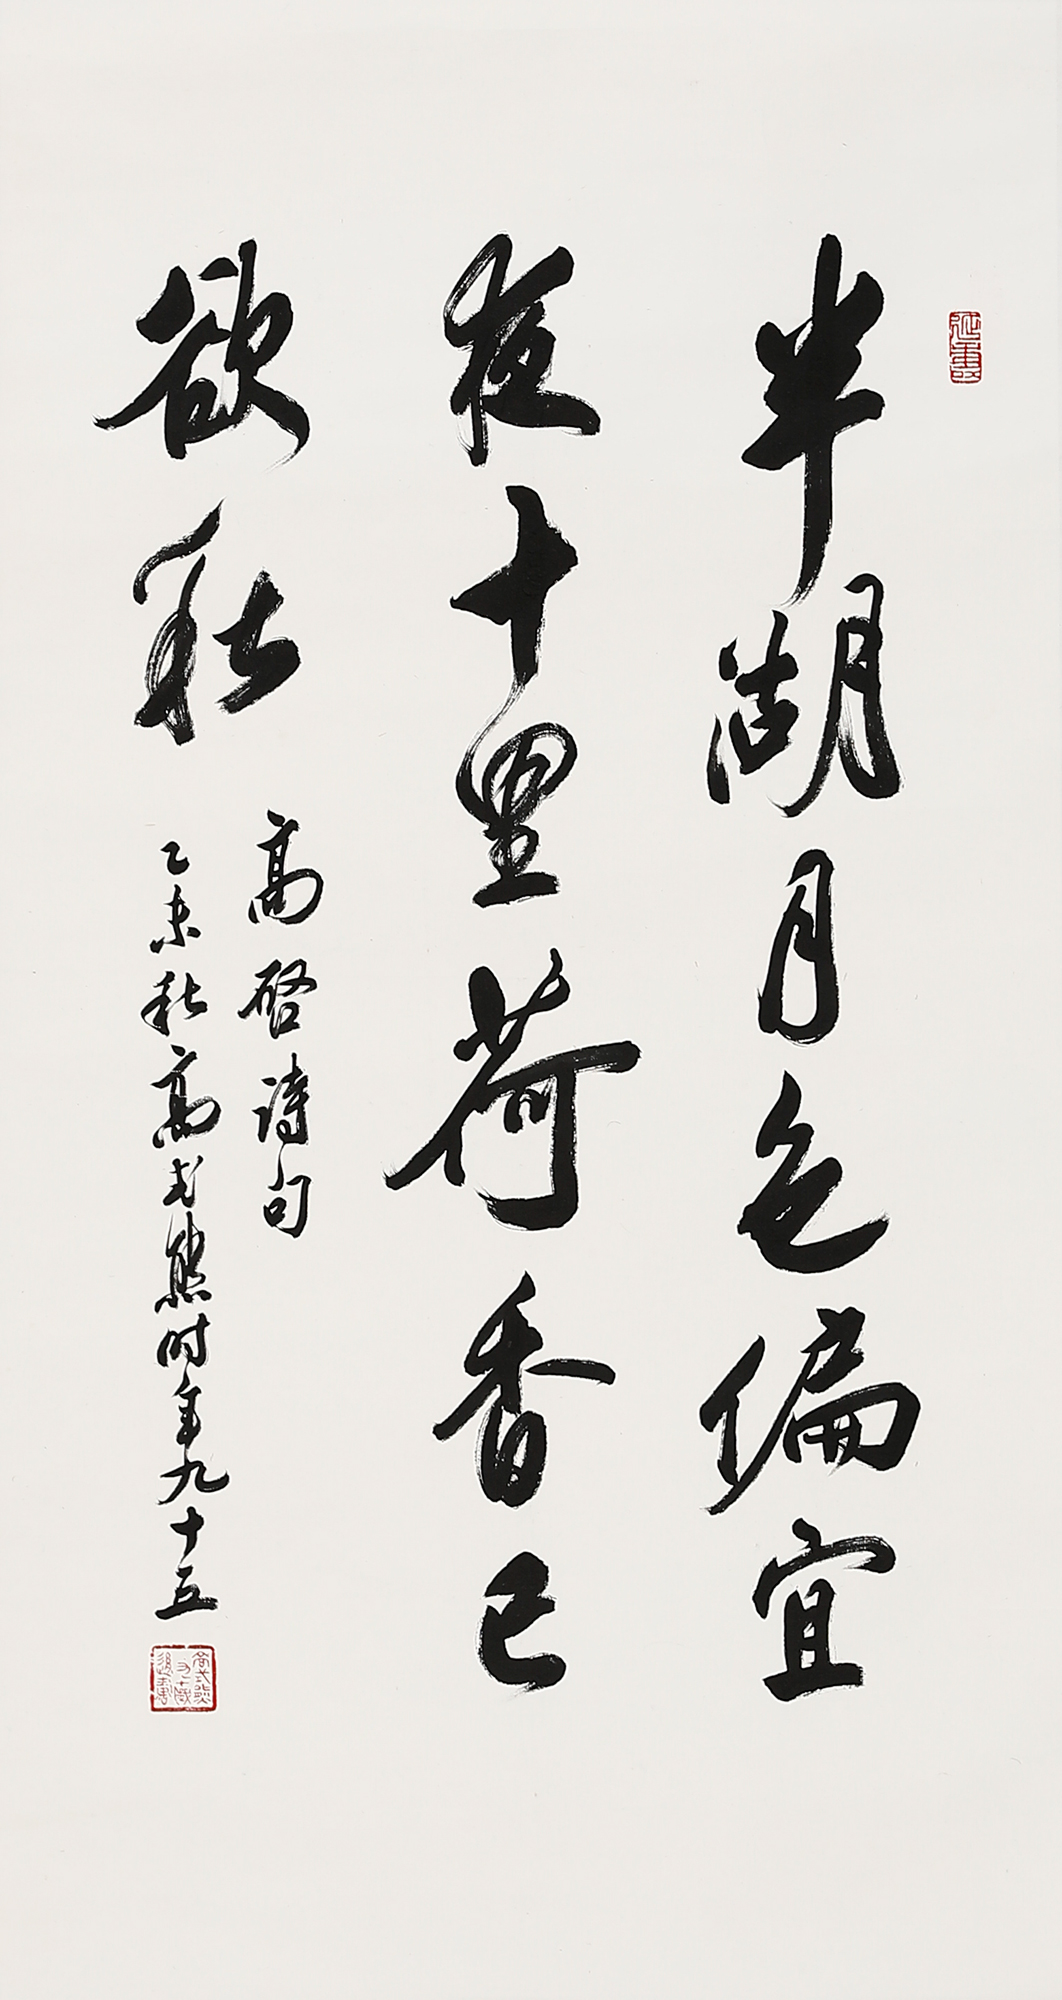 半湖月色偏宜
夜十里荷香已
欲秋
高啓诗句
乙未秋高式熊时年九十五